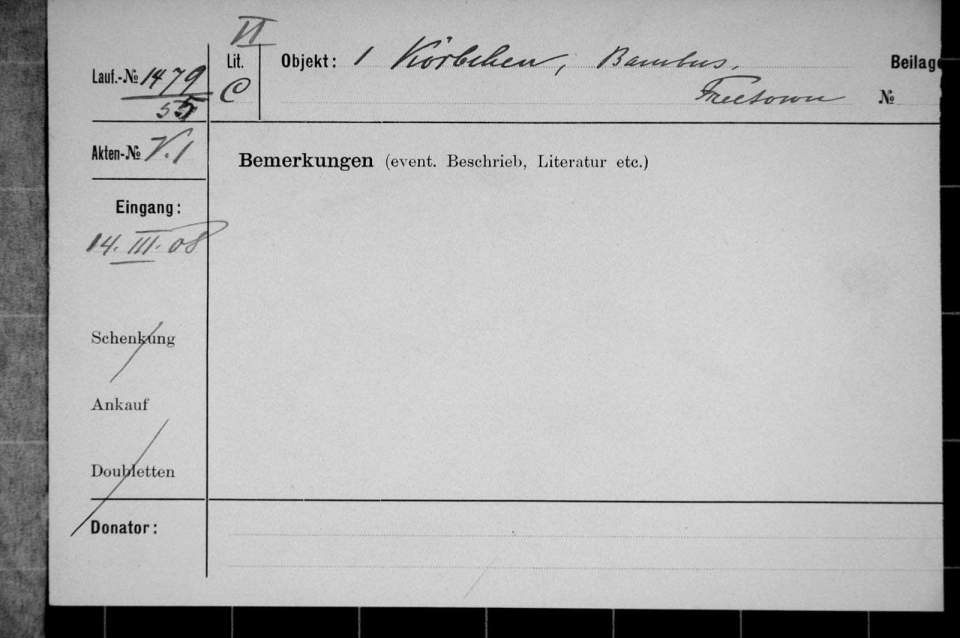 VI
Lauf.-№ 1479
55
Lit.
C
Objekt: 1 Körbchen, Bambus.
Freetown
Beilage
№
Akten-№ V.1
Bemerkungen (event. Beschrieb, Literatur etc.)
Eingang:
14. III. 08
Schenkung
Ankauf
Doubletten
Donator: